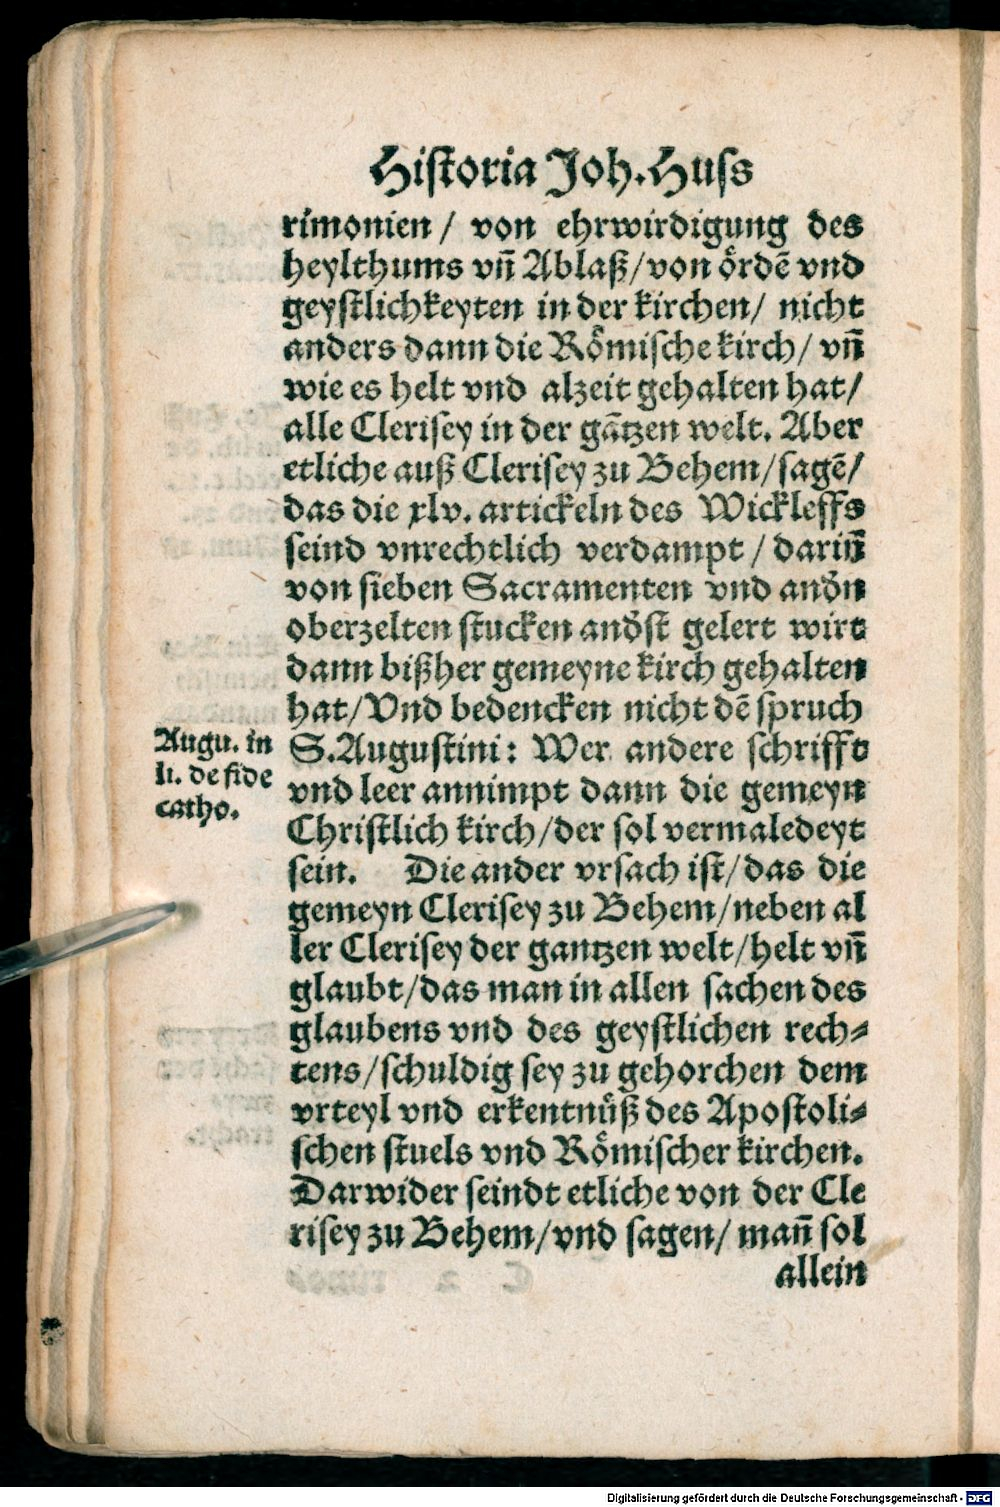 Historia Joh. Huss
rimonien / von ehrwirdigung des
heylthums vñ Ablaß/von órdē vnd
geystlichkeyten in der kirchen/ nicht
anders dann die Rómische kirch/ vñ
wie es helt vnd alzeit gehalten hat/
alle Clerisey in der gātzen welt. Aber
etliche auß Clerisey zu Behem/sagē/
das die xlv. artickeln des Wickleffs
seind vnrechtlich verdampt / dariñ
von sieben Sacramenten vnd anďn
oberzelten stucken anďst gelert wirt
dann bißher gemeyne kirch gehalten
hat/Vnd bedencken nicht dē spruch
Augu. in
li. de fide
catho.
S.Augustini: Wer andere schrifft
vnd leer annimpt dann die gemeyn
Christlich kirch/der sol vermaledeyt
sein. Die ander vrsach ist/das die
gemeyn Clerisey zu Behem/neben al
ler Clerisey der gantzen welt/helt vñ
glaubt/das man in allen sachen des
glaubens vnd des geystlichen rech⸗
tens/schuldig sey zu gehorchen dem
vrteyl vnd erkentnüß des Apostoli⸗
schen stuels vnd Rómischer kirchen.
Darwider seindt etliche von der Cle
risey zu Behem/vnd sagen/ mañ sol
allein
Digitalisierung gefördert durch die Deutsche Forschungsgemeinschaft - DFG